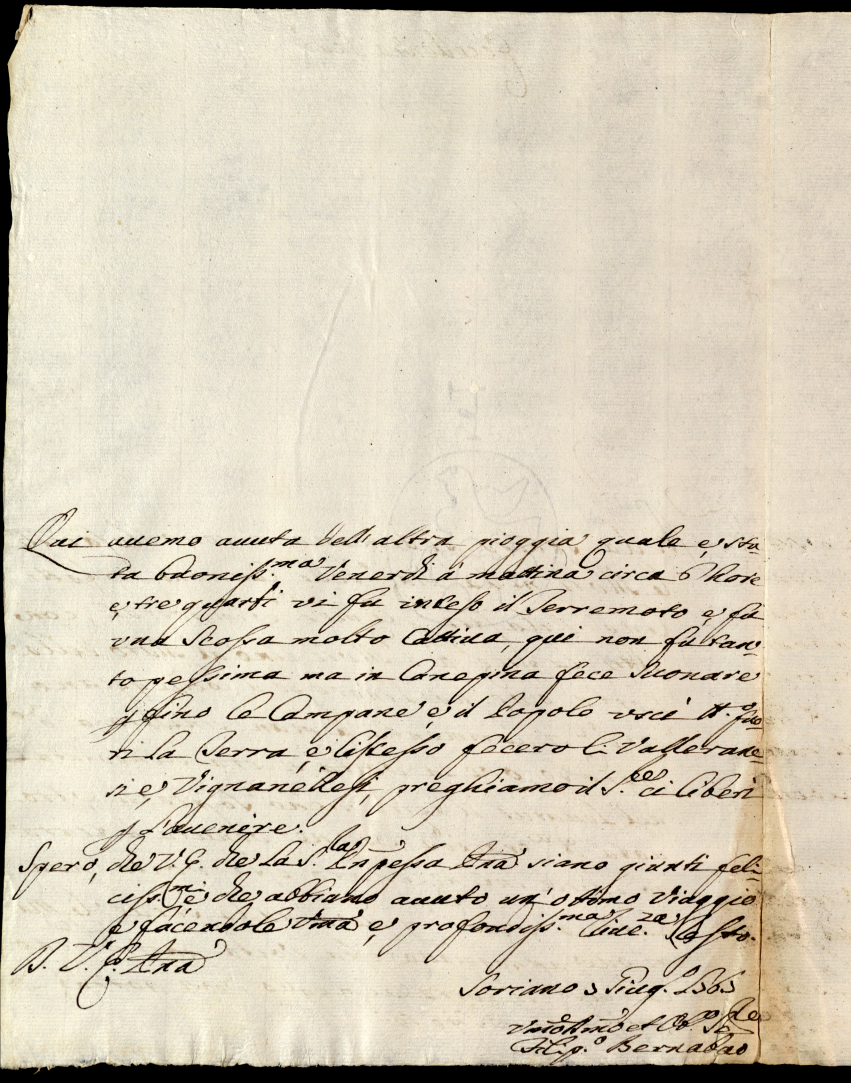 Qui avemo avuta dell'altra pioggia quale è sta-
ta buoniss.ma Venerdì a mattina circa 6 hore
e, tre quarti vi fu inteso il Terremoto e, fu
una Scossa molto Cattiva, qui non fu tan-
to pessima ma in Canepina fece Suonare
p fino le Campane e il Popolo uscì tt.o fuo-
ri la Terra, e, l'istesso fecero li Valleran-
si e, Vignanellesi, preghiamo il S.re ci liberi
p l'avenire.
Spero, che V.E. che la S.ra Pnpessa siano giunti feli-
ciss.me che, abbiano avuto un'ottimo Viaggio
e facendole Uma e, profondiss.ma Rive.za resto.
D. V. E.
Soriano 3 Giug.o
Umo et Ob.o Se.re
Filip.o Bernabao